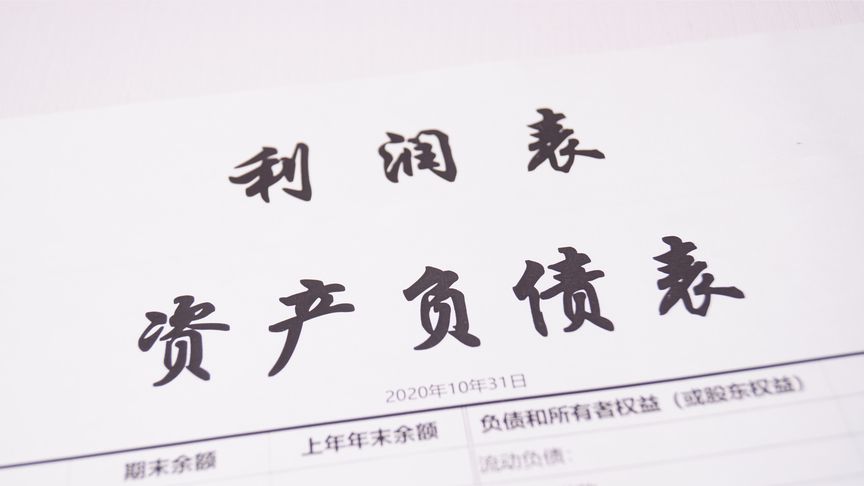 利润表
资产负债表
2020年10年31日
期末余额 上年年末余额 负债和所有者权益（或股东权益）
流动负债：